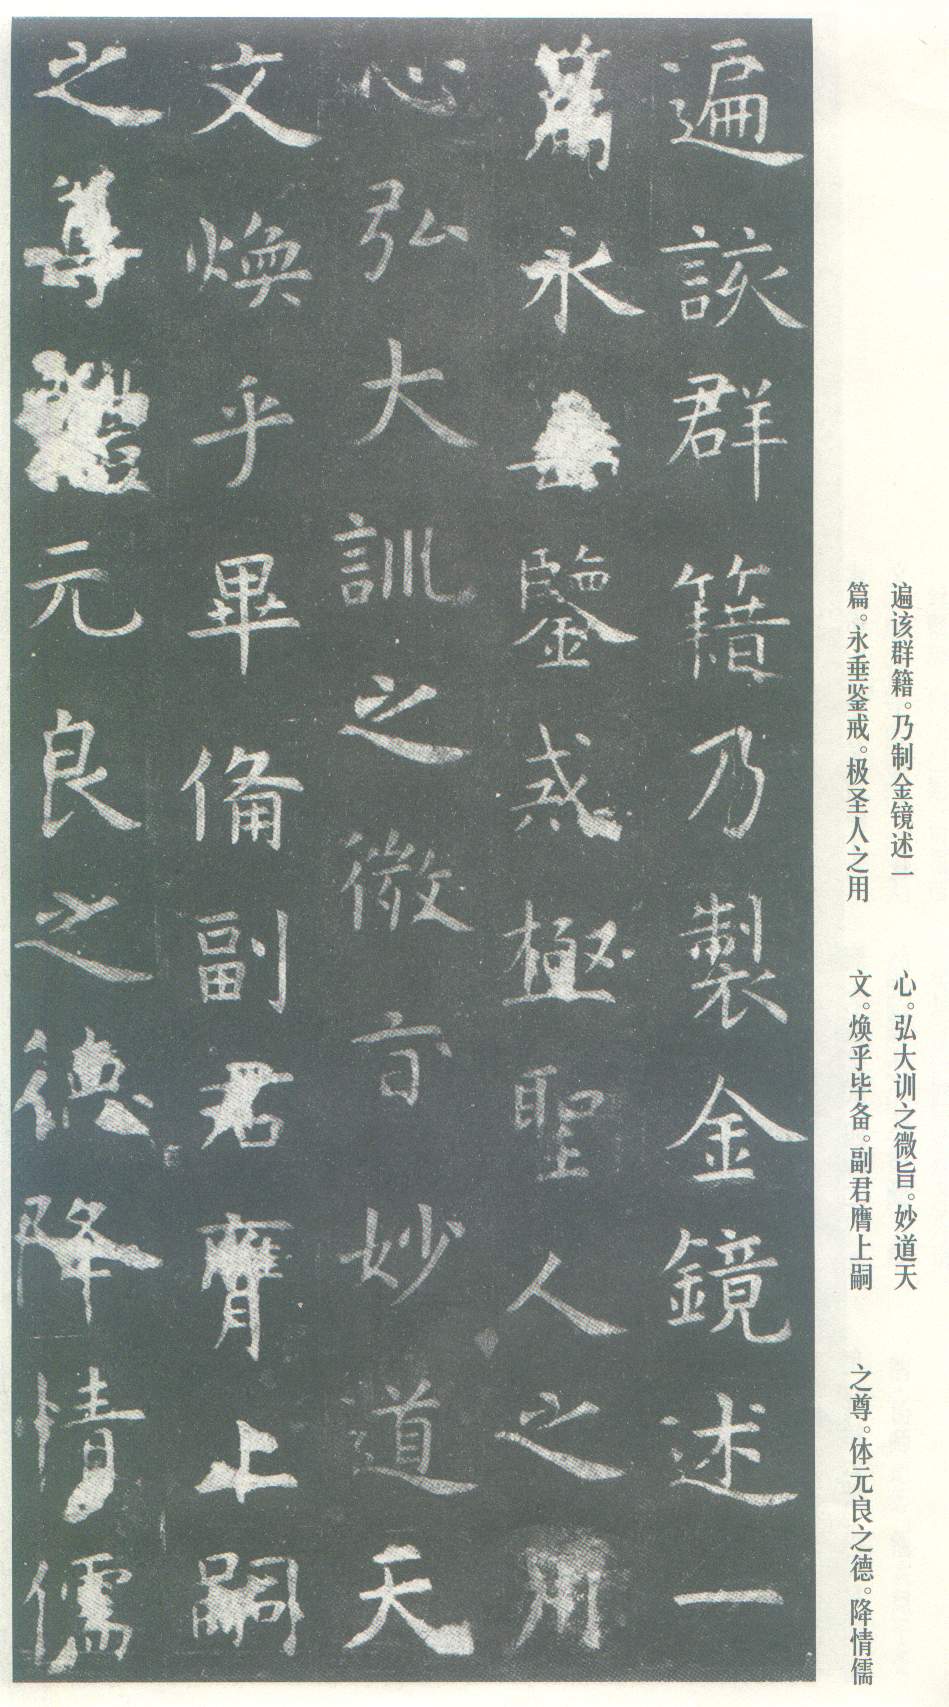 遍该群籍。乃制金镜述一
篇。永垂鉴戒。极圣人之用
心。弘大训之微旨。妙道天
文。焕乎毕备。副君膺上嗣
之尊。体元良之德。降情儒
遍該群籍乃製金鏡述一
篇永垂鑒戒極聖人之用
心弘大訓之微旨妙道天
文煥乎畢備副君膺上嗣
之尊體元良之德降情儒